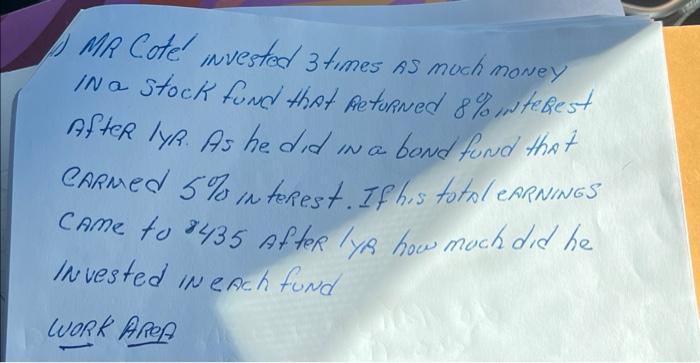 1) MR Cotel invested 3 times AS much money
IN a Stock fund that Returned 8% interest
After 1yR. As he did in a bond fund that
EARNED 5% interest. If his total EARNINGS
CAme to $435 After 1yR how much did he
Invested in each fund
WORK AReA